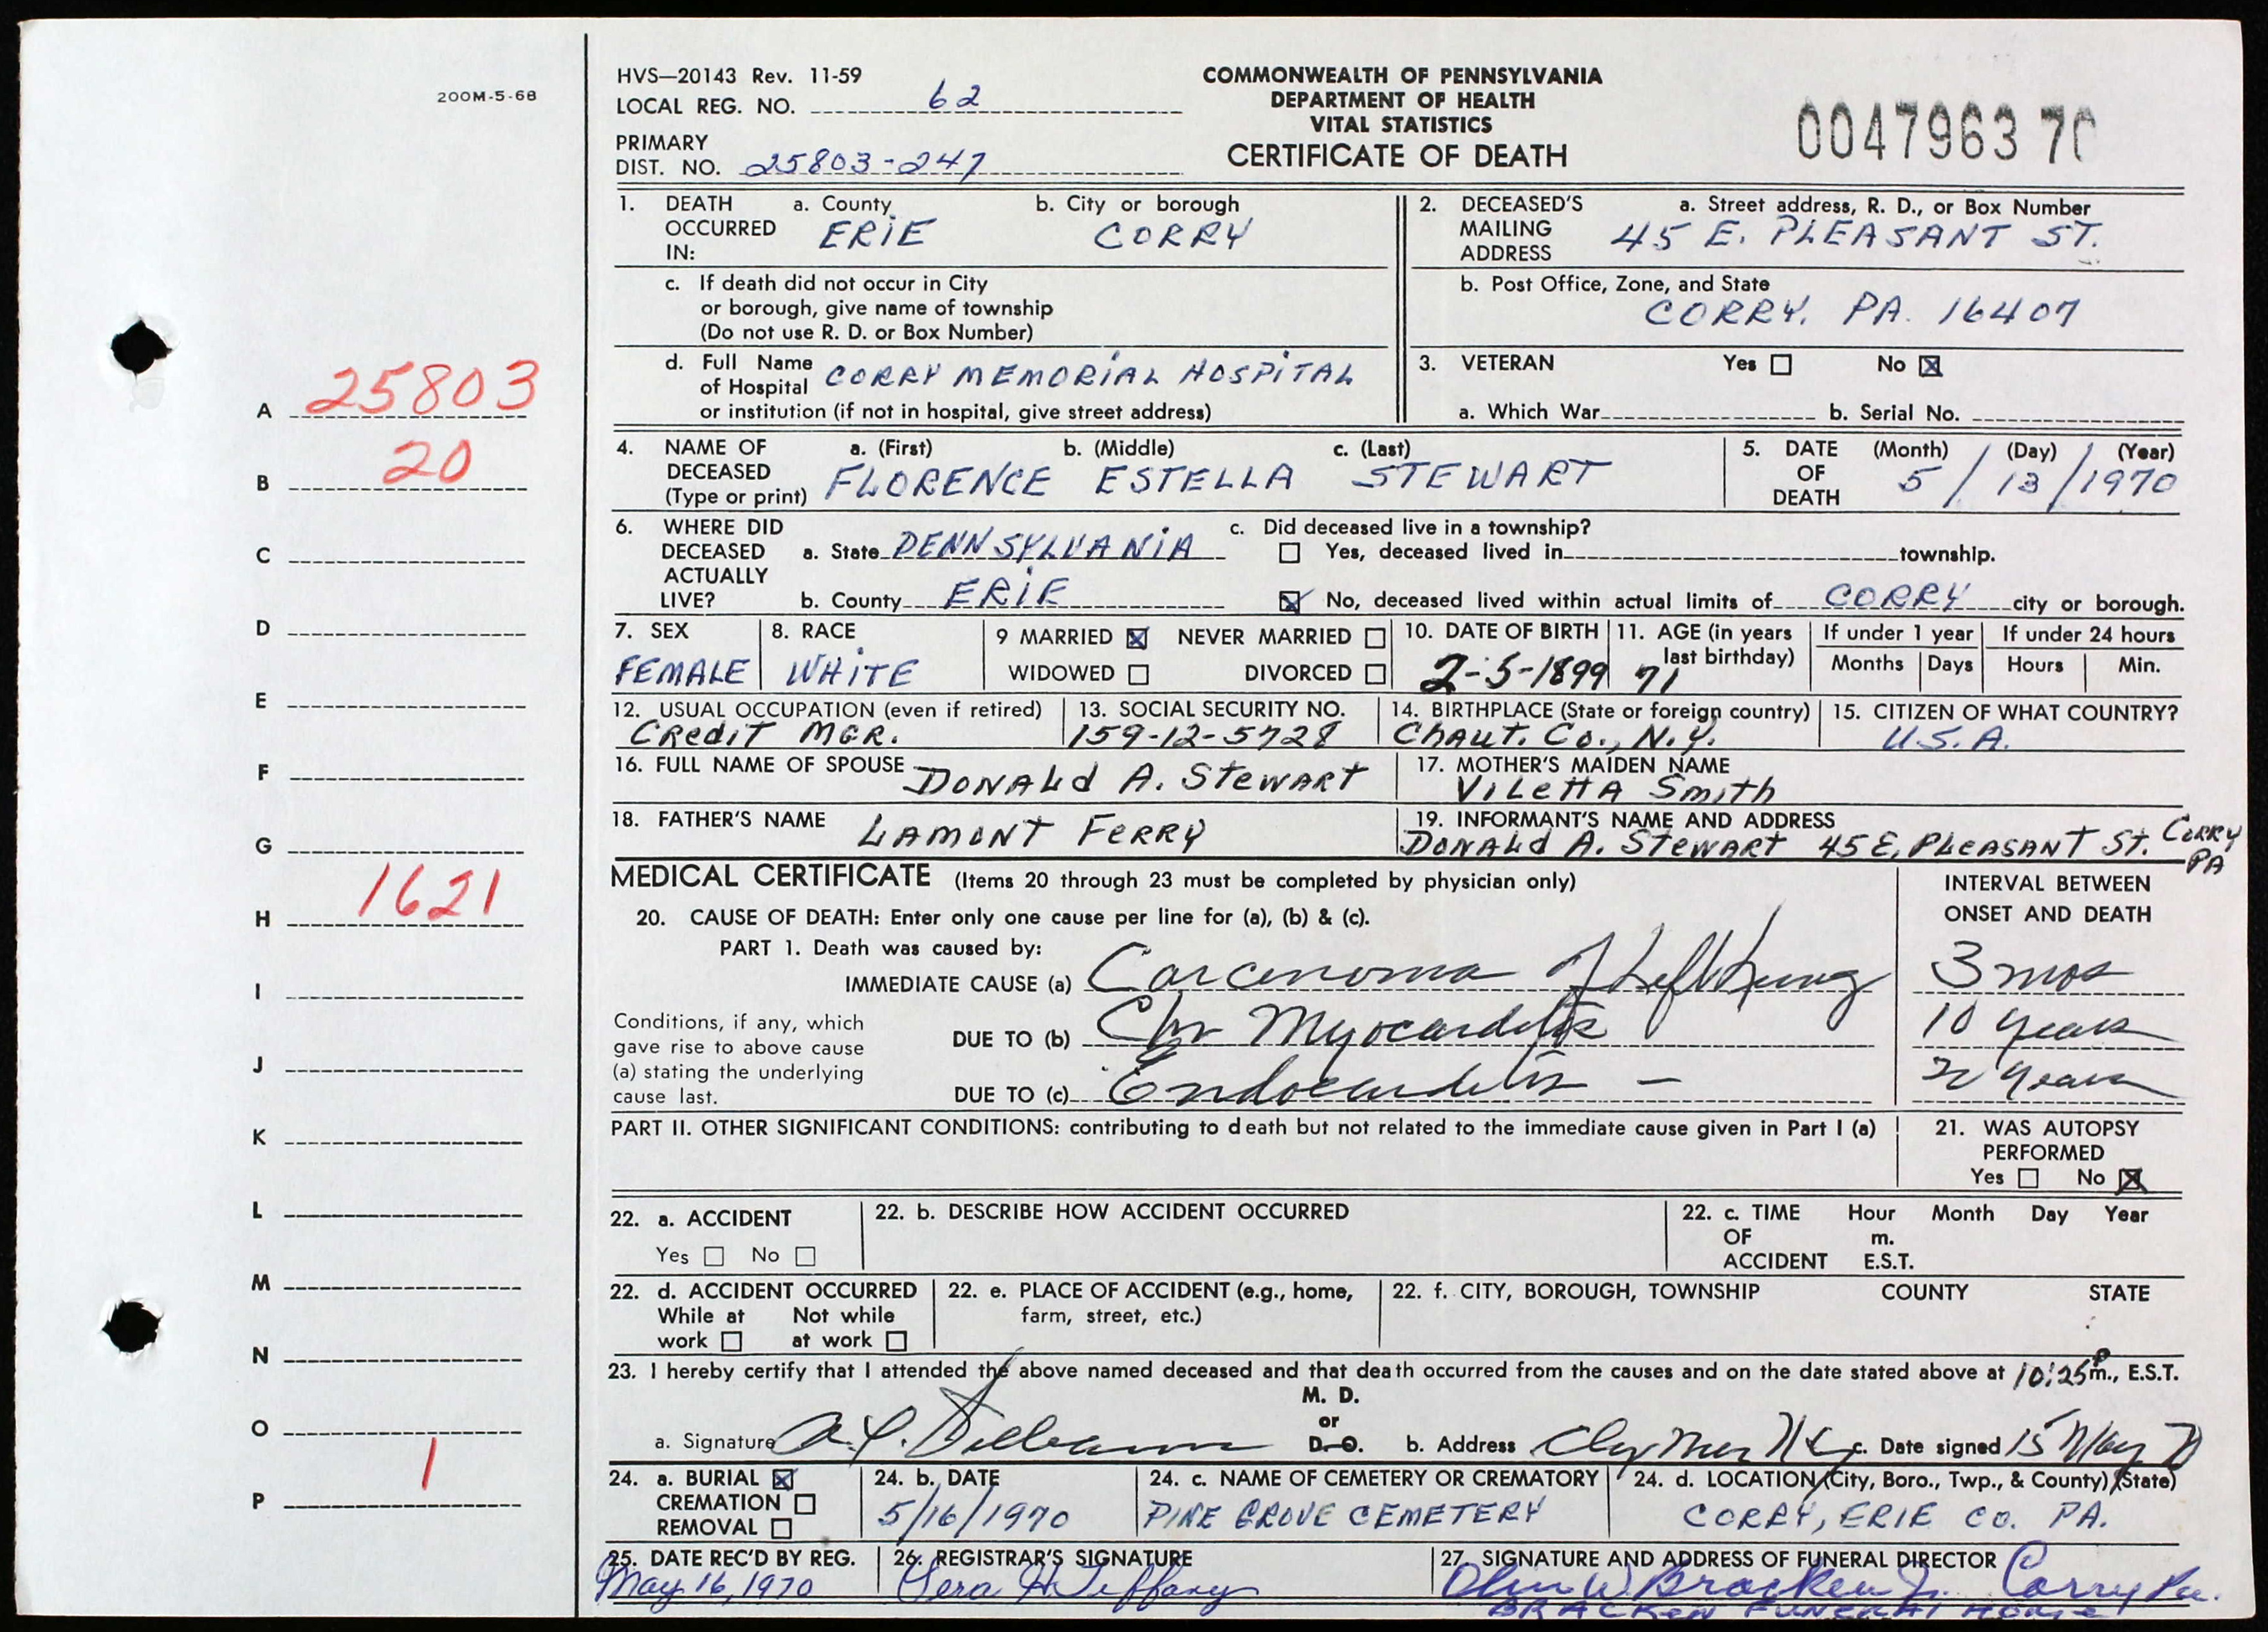 200M-5-68
HVS—20143 Rev. 11-59
LOCAL REG. NO. 62
PRIMARY
DIST. NO. 25803-247
COMMONWEALTH OF PENNSYLVANIA
DEPARTMENT OF HEALTH
VITAL STATISTICS
CERTIFICATE OF DEATH
0047963 70
A 25803
B 20
C
D
E
F
G
H 1621
I
J
K
L
M
N
O
P 1
1. DEATH OCCURRED IN: a. County ERIE b. City or borough CORRY
c. If death did not occur in City
or borough, give name of township
(Do not use R. D. or Box Number)
d. Full Name of Hospital CORRY MEMORIAL HOSPITAL
or institution (if not in hospital, give street address)
2. DECEASED'S MAILING ADDRESS a. Street address, R. D., or Box Number
45 E. PLEASANT ST.
b. Post Office, Zone, and State
CORRY. PA. 16407
3. VETERAN Yes ☐ No ☒
a. Which War b. Serial No.
4. NAME OF DECEASED (Type or print) a. (First) b. (Middle) c. (Last)
FLORENCE ESTELLA STEWART
5. DATE OF DEATH (Month) (Day) (Year)
5 / 13 / 1970
6. WHERE DID DECEASED ACTUALLY LIVE? a. State PENNSYLVANIA
b. County ERIE
c. Did deceased live in a township?
☐ Yes, deceased lived in township.
☒ No, deceased lived within actual limits of CORRY city or borough.
7. SEX FEMALE
8. RACE WHITE
9 MARRIED ☒ NEVER MARRIED ☐
WIDOWED ☐ DIVORCED ☐
10. DATE OF BIRTH 2-5-1899
11. AGE (in years last birthday) 71
If under 1 year Months Days
If under 24 hours Hours Min.
12. USUAL OCCUPATION (even if retired)
Credit MGR.
13. SOCIAL SECURITY NO.
159-12-5728
14. BIRTHPLACE (State or foreign country)
Chaut. Co., N.Y.
15. CITIZEN OF WHAT COUNTRY?
U.S.A.
16. FULL NAME OF SPOUSE Donald A. Stewart
17. MOTHER'S MAIDEN NAME
Viletta Smith
18. FATHER'S NAME Lamont Ferry
19. INFORMANT'S NAME AND ADDRESS
Donald A. Stewart 45 E. Pleasant St. Corry PA
MEDICAL CERTIFICATE (Items 20 through 23 must be completed by physician only)
INTERVAL BETWEEN
ONSET AND DEATH
20. CAUSE OF DEATH: Enter only one cause per line for (a), (b) & (c).
PART 1. Death was caused by:
IMMEDIATE CAUSE (a) Carcinoma of Left Lung 3 mos
Conditions, if any, which
gave rise to above cause
(a) stating the underlying
cause last.
DUE TO (b) Chr Myocarditis 10 years
DUE TO (c) Endocarditis — years
PART II. OTHER SIGNIFICANT CONDITIONS: contributing to death but not related to the immediate cause given in Part I (a)
21. WAS AUTOPSY
PERFORMED
Yes ☐ No ☒
22. a. ACCIDENT
Yes ☐ No ☐
22. b. DESCRIBE HOW ACCIDENT OCCURRED
22. c. TIME OF ACCIDENT Hour Month Day Year
m.
E.S.T.
22. d. ACCIDENT OCCURRED
While at work ☐ Not while at work ☐
22. e. PLACE OF ACCIDENT (e.g., home,
farm, street, etc.)
22. f. CITY, BOROUGH, TOWNSHIP COUNTY STATE
23. I hereby certify that I attended the above named deceased and that death occurred from the causes and on the date stated above at 10:25 P m., E.S.T.
M. D.
or
D.O.
a. Signature
b. Address Clymer NY
c. Date signed 15 May 70
24. a. BURIAL ☒
CREMATION ☐
REMOVAL ☐
24. b. DATE
5/16/1970
24. c. NAME OF CEMETERY OR CREMATORY
PINE GROVE CEMETERY
24. d. LOCATION (City, Boro., Twp., & County) (State)
CORRY, ERIE CO. PA.
25. DATE REC'D BY REG.
May 16, 1970
26. REGISTRAR'S SIGNATURE
Vera H. Tiffany
27. SIGNATURE AND ADDRESS OF FUNERAL DIRECTOR
Olin W. Bracken Jr. Corry Pa.
BRACKEN FUNERAL HOME